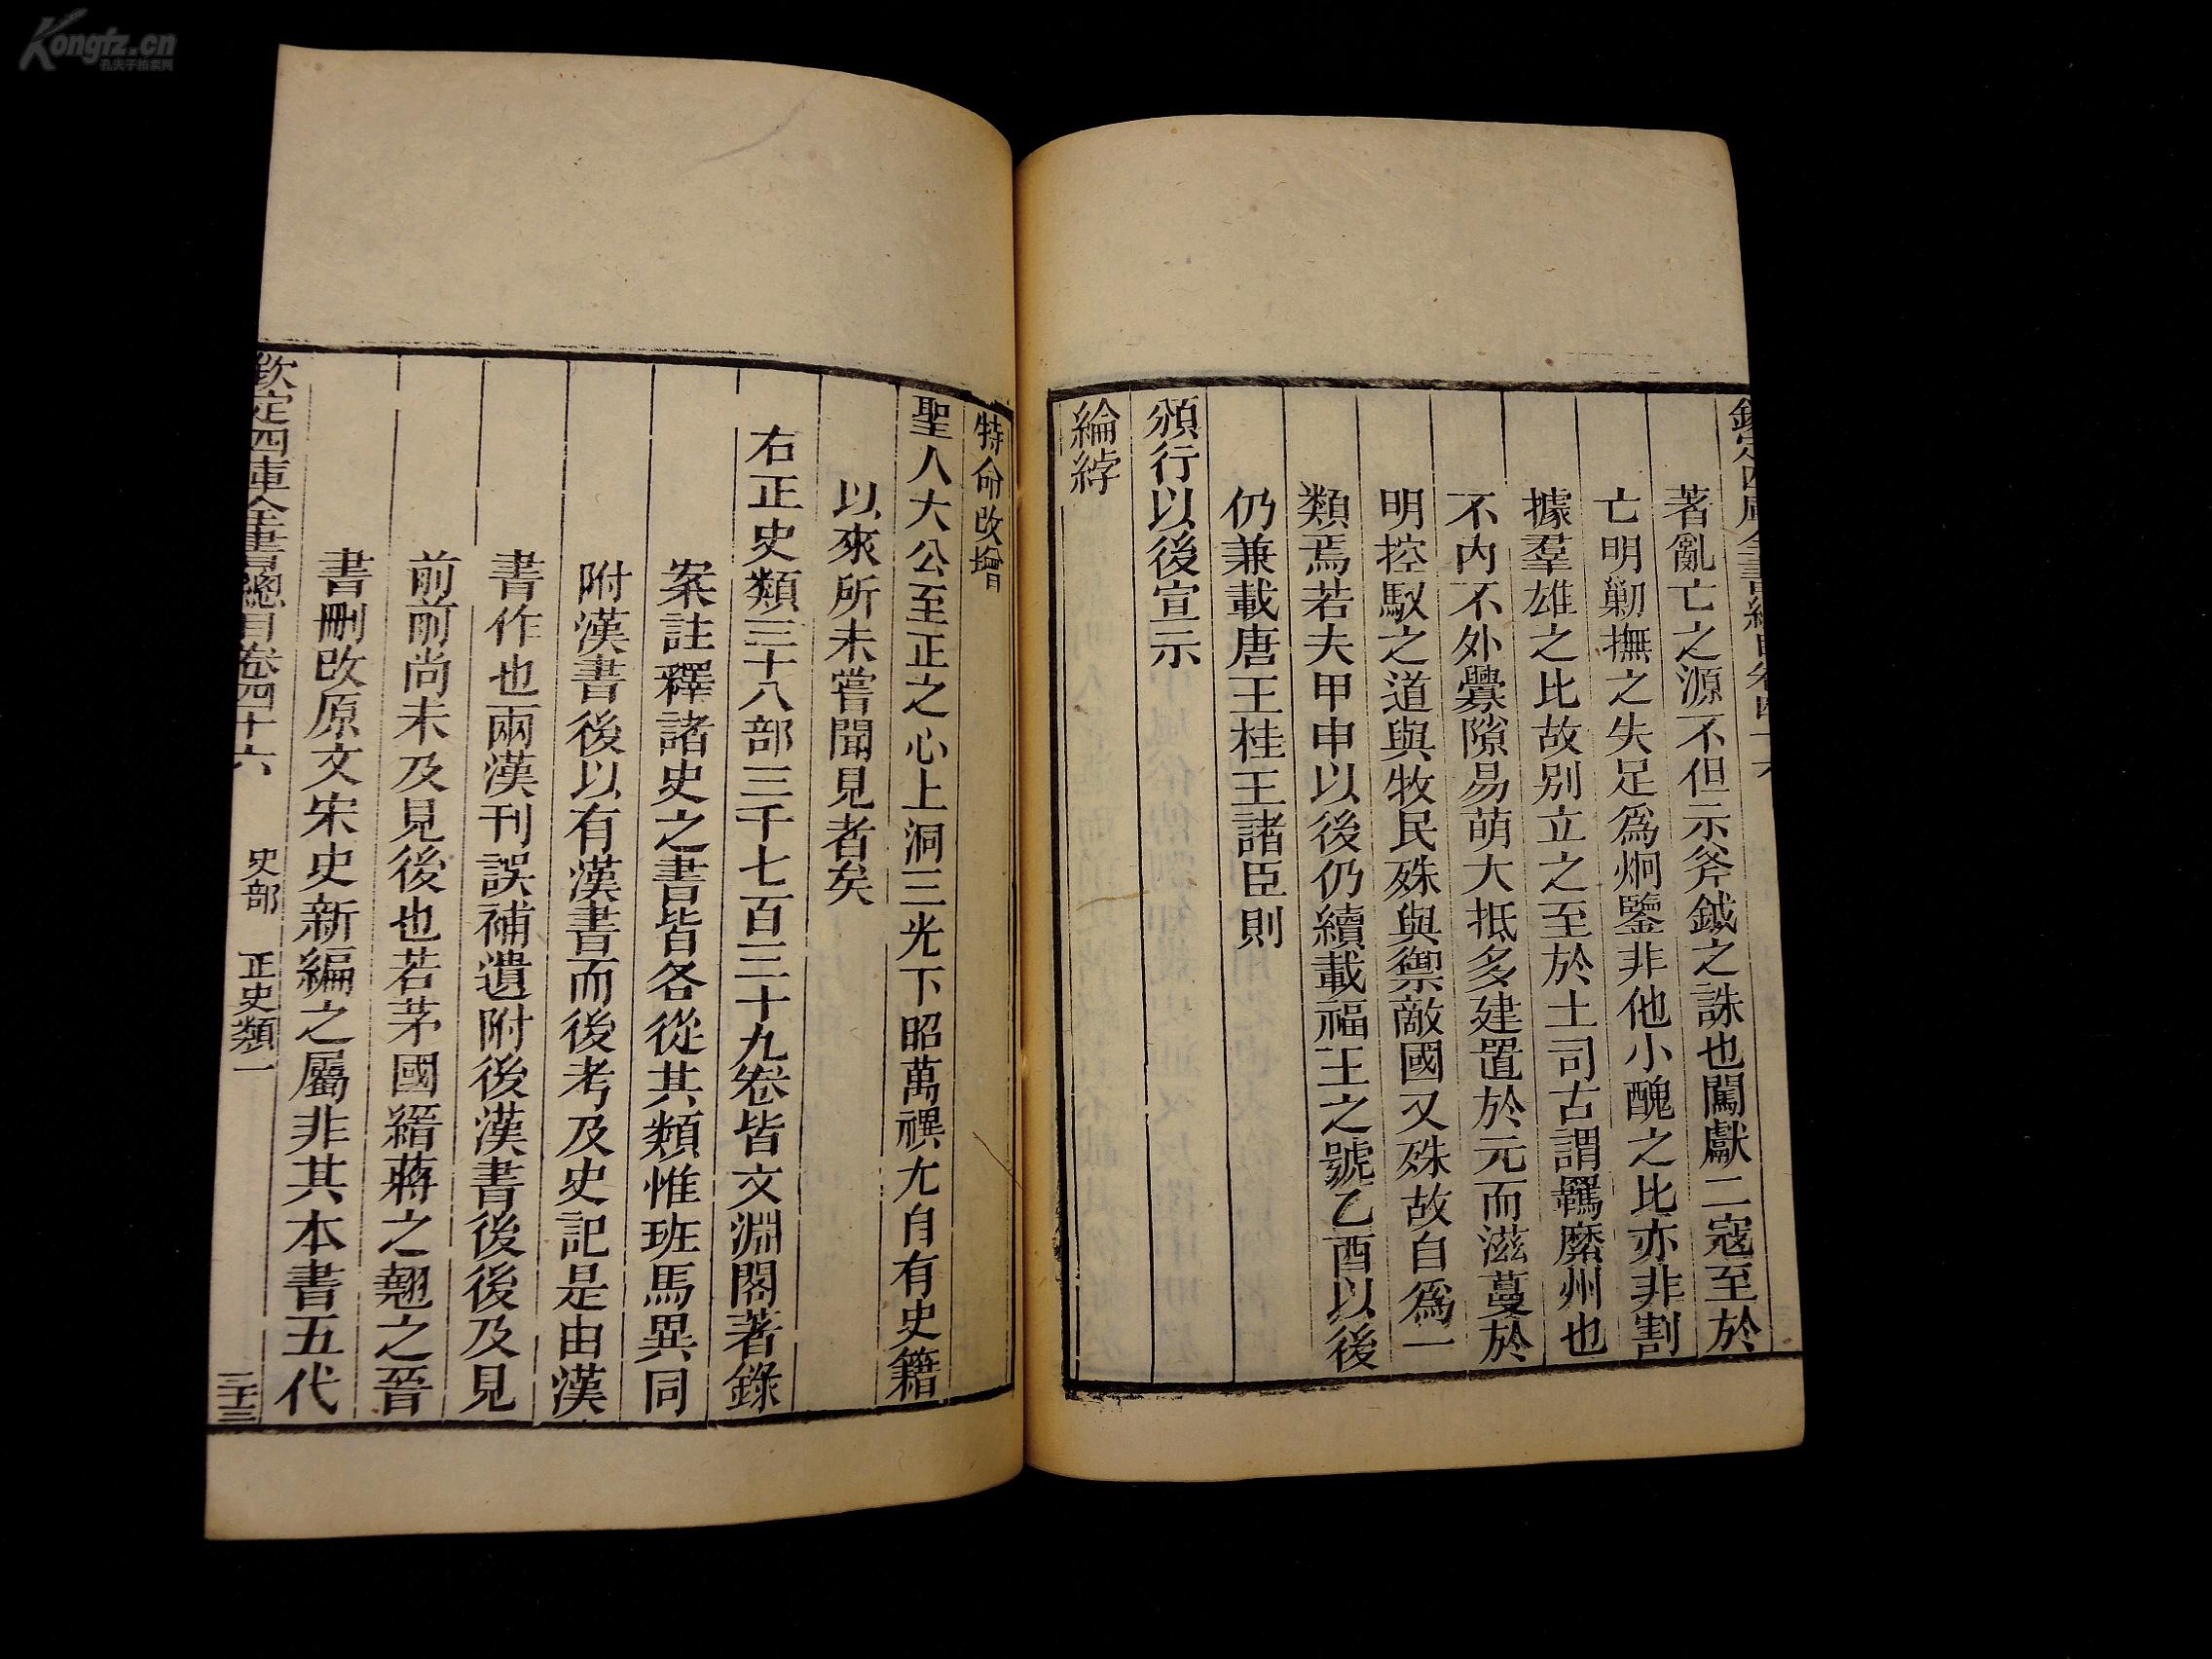 Kongfz.cn
孔夫子拍卖网
著亂亡之源不但示斧鉞之誅也闖獻二寇至於
亡明勦撫之失足爲炯鑒非他小醜之比亦非割
據羣雄之比故別立之至於土司古謂羈縻州也
不內不外釁隙易萌大抵多建置於元而滋蔓於
明控馭之道與牧民殊與禦敵國又殊故自爲一
類焉若夫甲申以後仍續載福王之號乙酉以後
仍兼載唐王桂王諸臣則
頒行以後宣示
綸綍
特命改增
聖人大公至正之心上洞三光下昭萬禩尤自有史籍
以來所未嘗聞見者矣
右正史類三十八部三千七百三十九卷皆文淵閣著錄
案註釋諸史之書皆各從其類惟班馬異同
附漢書後以有漢書而後考及史記是由漢
書作也兩漢刊誤補遺附後漢書後後及見
前前尚未及見後也若茅國縉蔣之翹之晉
書刪改原文宋史新編之屬非其本書五代
欽定四庫全書總目卷四十六 史部 正史類一 三十三